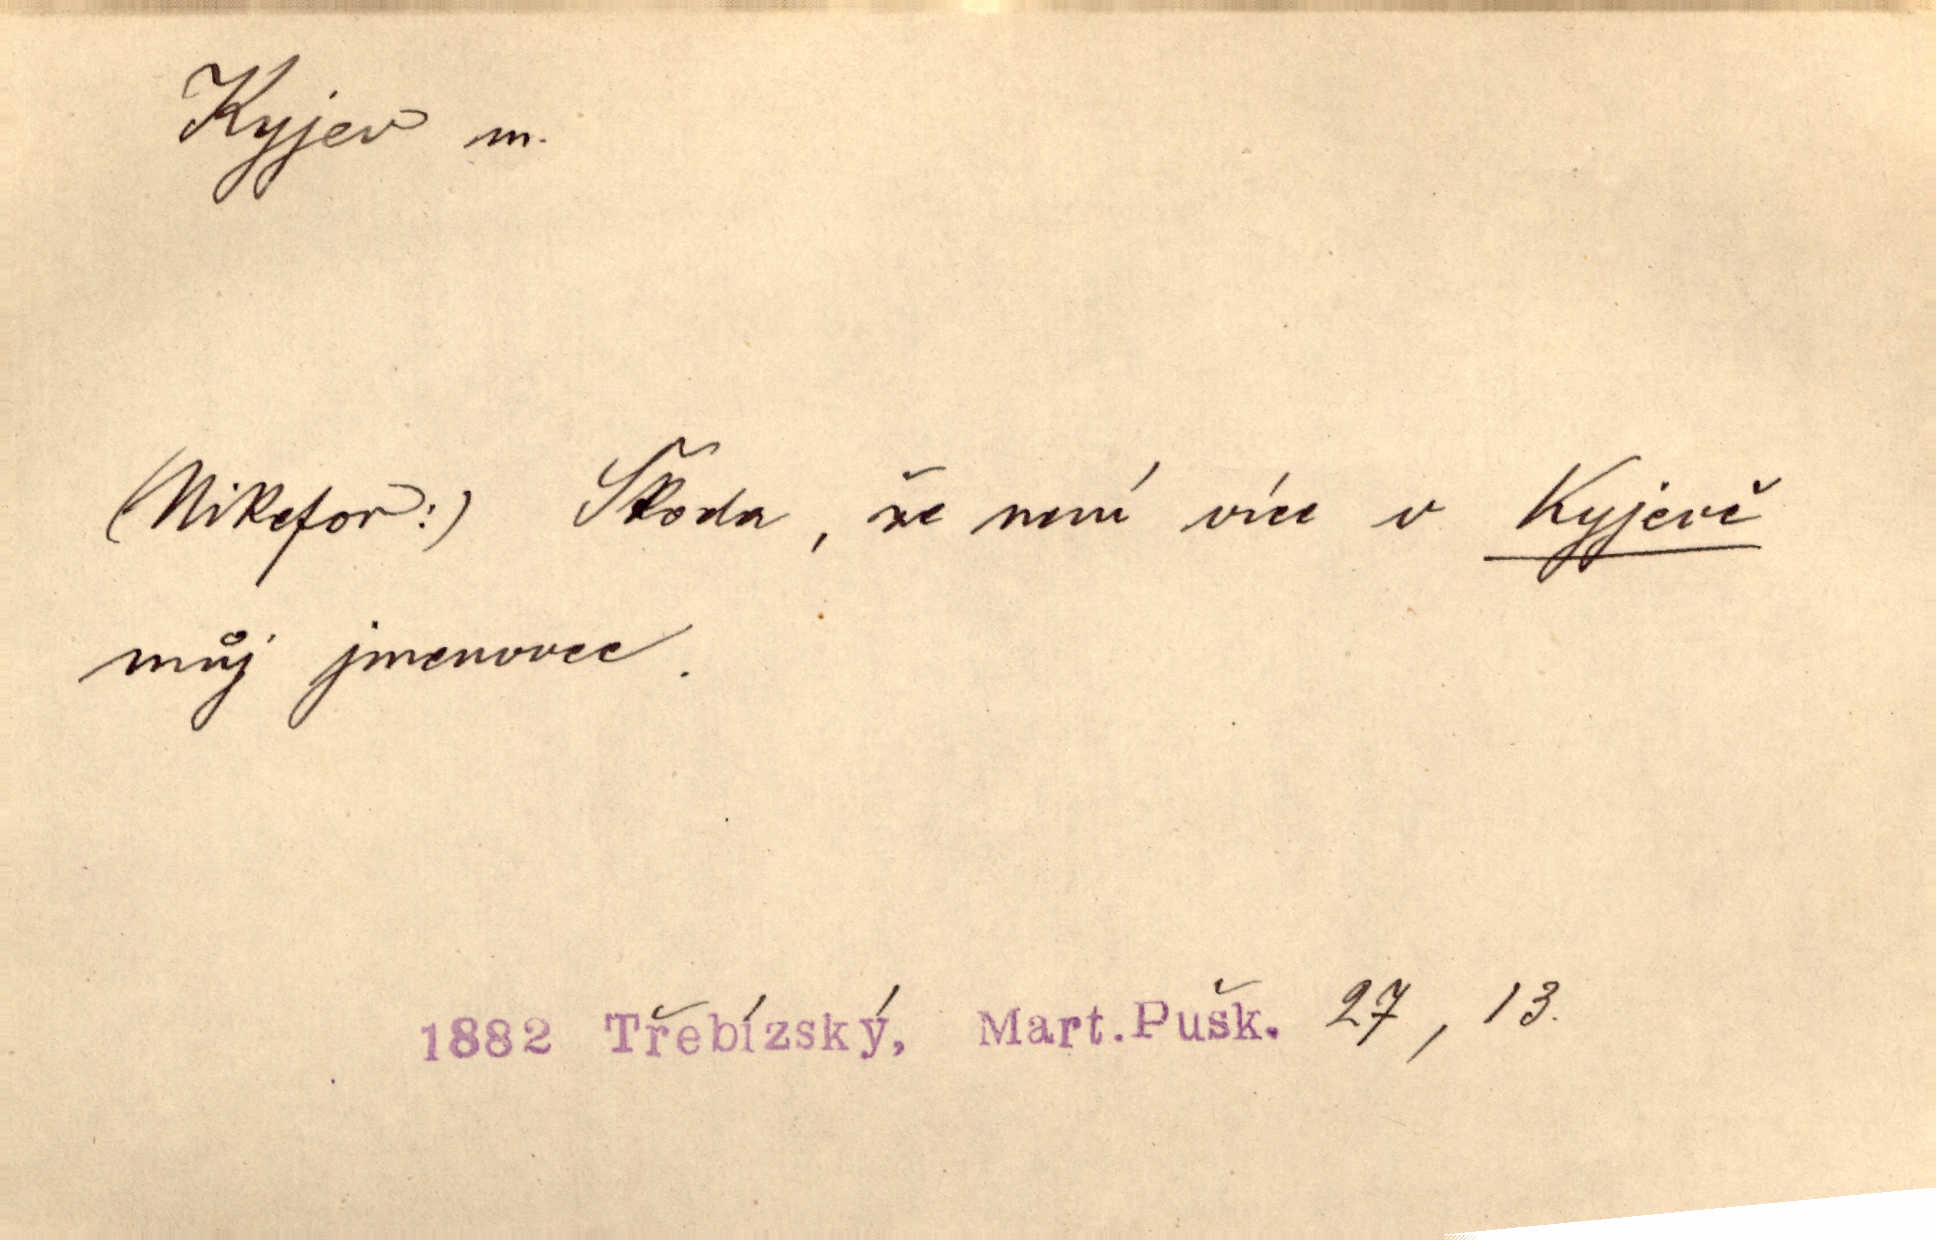 Kyjev m.
(Nikefor:) Škoda, že není více v Kyjevě
můj jmenovec.
1882 Třebízský, Mart.Pušk. 27, 13.